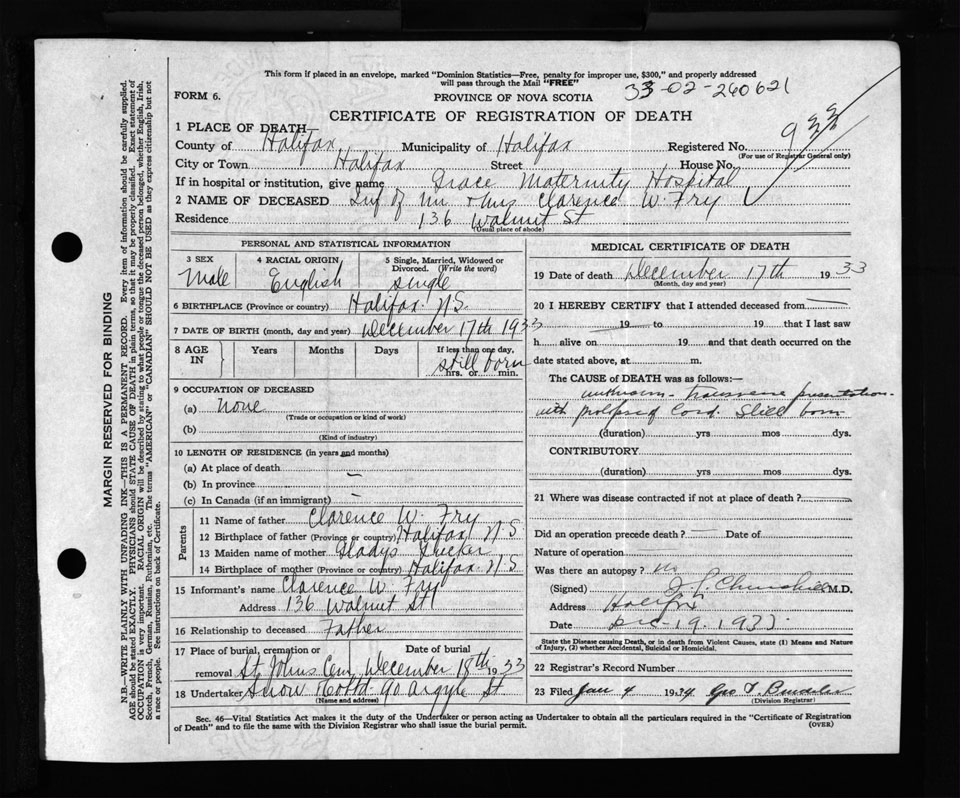 This form if placed in an envelope, marked "Dominion Statistics—Free, penalty for improper use, $300," and properly addressed
will pass through the Mail "FREE"
33-02-260621
FORM 6.
PROVINCE OF NOVA SCOTIA
CERTIFICATE OF REGISTRATION OF DEATH
933
1 PLACE OF DEATH—
County of Halifax Municipality of Halifax Registered No.
(For use of Registrar General only)
City or Town Halifax Street House No.
If in hospital or institution, give name Grace Maternity Hospital
2 NAME OF DECEASED Inf of Mr & Mrs Clarence W. Fry
Residence 136 Walnut St
(Usual place of abode)
PERSONAL AND STATISTICAL INFORMATION
3 SEX
Male
4 RACIAL ORIGIN
English
5 Single, Married, Widowed or
Divorced. (Write the word)
single
6 BIRTHPLACE (Province or country) Halifax N.S.
7 DATE OF BIRTH (month, day and year) December 17th 1933
8 AGE IN
Years
Months
Days
If less than one day,
still born
hrs. or min.
9 OCCUPATION OF DECEASED
(a) none
(Trade or occupation or kind of work)
(b)
(Kind of industry)
10 LENGTH OF RESIDENCE (in years and months)
(a) At place of death
(b) In province
(c) In Canada (if an immigrant)
Parents
11 Name of father Clarence W. Fry
12 Birthplace of father (Province or country) Halifax N.S
13 Maiden name of mother Gladys
14 Birthplace of mother (Province or country) Halifax N.S
15 Informant's name Clarence W. Fry
Address 136 Walnut St
16 Relationship to deceased Father
17 Place of burial, cremation or removal Date of burial
St Johns Cem, December 18th 1933
18 Undertaker Snow & Co Ltd 90 Argyle St
(Name and address)
MEDICAL CERTIFICATE OF DEATH
19 Date of death December 17th 1933
(Month, day and year)
20 I HEREBY CERTIFY that I attended deceased from
19 to 19 that I last saw
h alive on 19 and that death occurred on the
date stated above, at m.
The CAUSE of DEATH was as follows:—
unknown - transverse presentation
with prolapsed cord. Still born
(duration) yrs mos dys.
CONTRIBUTORY
(duration) yrs mos dys.
21 Where was disease contracted if not at place of death?
Did an operation precede death? Date of
Nature of operation
Was there an autopsy? no
(Signed) Churchill M.D.
Address Halifax
Date Dec 19. 1933.
State the Disease causing Death, or in death from Violent Causes, state (1) Means and Nature
of Injury, (2) whether Accidental, Suicidal or Homicidal.
22 Registrar's Record Number
23 Filed Jan 4 1934 Geo
(Division Registrar)
Sec. 46—Vital Statistics Act makes it the duty of the Undertaker or person acting as Undertaker to obtain all the particulars required in the "Certificate of Registration
of Death" and to file the same with the Division Registrar who shall issue the burial permit.
(OVER)
MARGIN RESERVED FOR BINDING
N.B.—WRITE PLAINLY WITH UNFADING INK—THIS IS A PERMANENT RECORD. Every item of information should be carefully supplied.
AGE should be stated EXACTLY. PHYSICIANS should STATE CAUSE OF DEATH in plain terms, so that it may be properly classified. Exact statement of
OCCUPATION is very important. RACIAL ORIGIN will be described by stating to what people or tongue the deceased person belonged, whether English, Irish,
Scotch, French, German, Russian, Ruthenian, etc. The terms "AMERICAN" or "CANADIAN" SHOULD NOT BE USED as they express citizenship but not
a race or people. See instructions on back of Certificate.